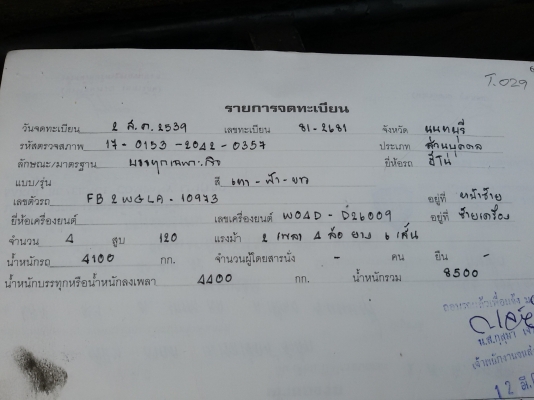 T.029
รายการจดทะเบียน
วันจดทะเบียน 2 ส.ค. 2539 เลขทะเบียน 81-2681 จังหวัด นนทบุรี
รหัสตรวจสภาพ 17-0153-2042-0357 ประเภท ส่วนบุคคล
ลักษณะ/มาตรฐาน บรรทุกเฉพาะกิจ ยี่ห้อรถ ฮีโน่
แบบ/รุ่น สี เทา-ฟ้า-ขาว
เลขตัวรถ FB2WGLA-10973 อยู่ที่ หน้าซ้าย
ยี่ห้อเครื่องยนต์ เลขเครื่องยนต์ WO4D-D26009 อยู่ที่ ซ้ายเครื่อง
จำนวน 4 สูบ 120 แรงม้า 2 เพลา 4 ล้อ ยาง 6 เส้น
น้ำหนักรถ 4100 กก. จำนวนผู้โดยสารนั่ง - คน ยืน -
น้ำหนักบรรทุกหรือน้ำหนักลงเพลา 4400 กก. น้ำหนักรวม 8500
12 มี.